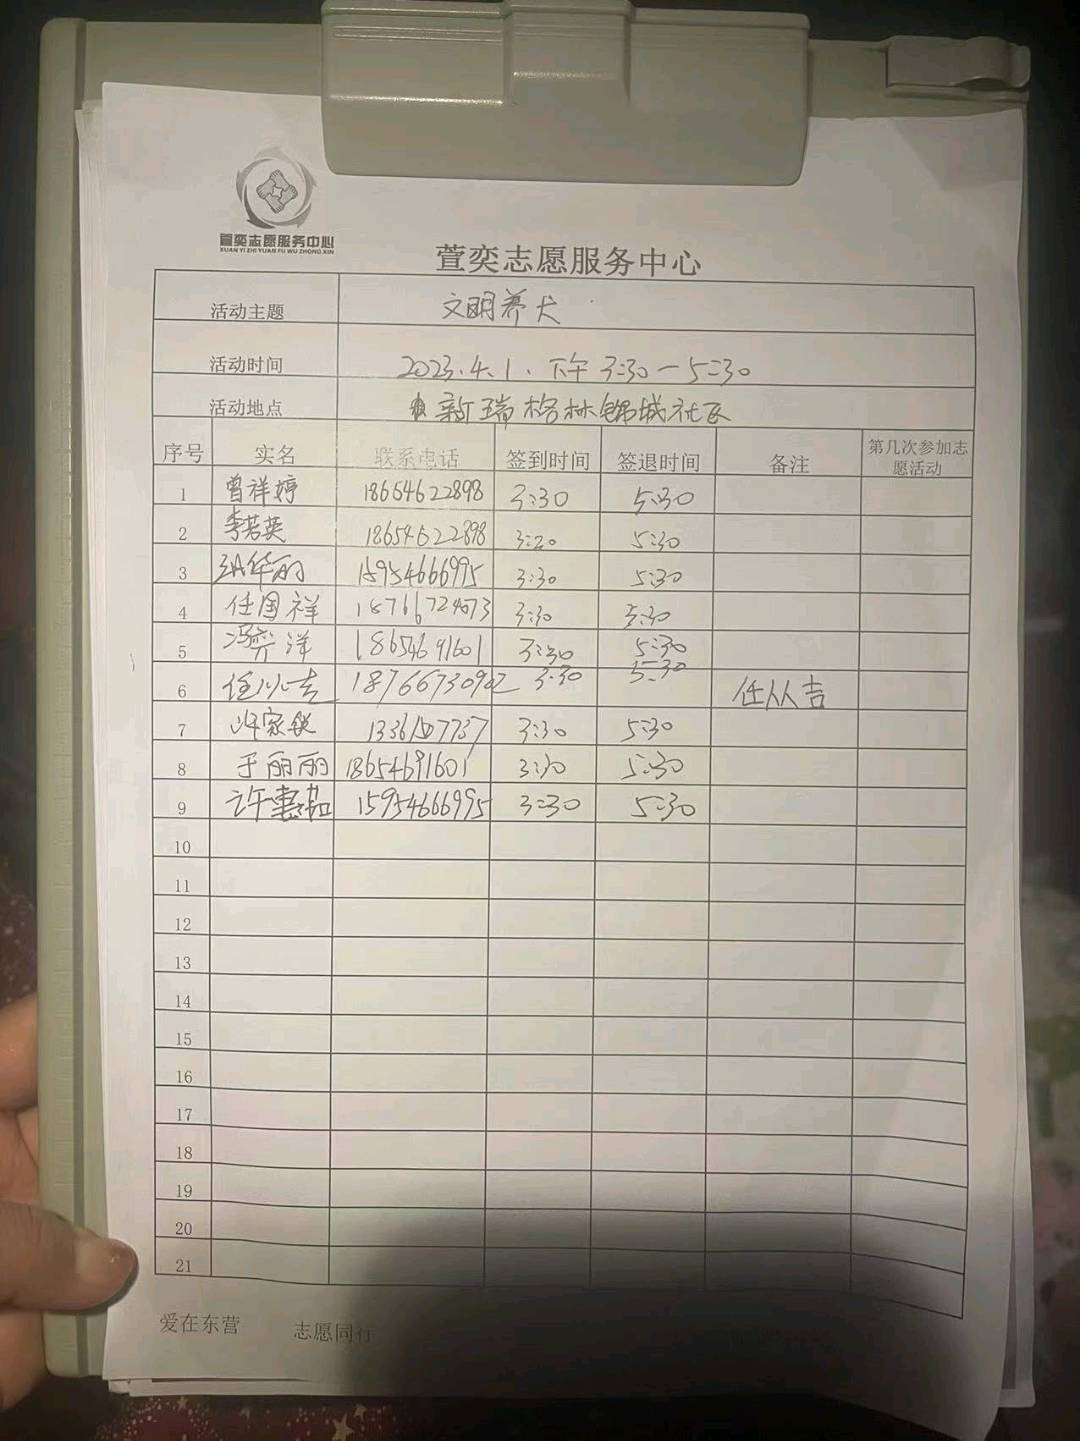 萱奕志愿服务中心
XUAN YI ZHI YUAN FU WU ZHONG XIN
萱奕志愿服务中心
活动主题 文明养犬
活动时间 2023.4.1. 下午 3:30-5:30
活动地点 新瑞格林锦城社区
序号 实名 联系电话 签到时间 签退时间 备注 第几次参加志愿活动
1 曾祥婷 18654622898 3:30 5:30
2 李若英 18654622898 3:30 5:30
3 15954666995 3:30 5:30
4 任国祥 3:30 5:30
5 冯 洋 18654691601 3:30 5:30
6 任从吉 18766730902 3:30 5:30 任从吉
7 3:30 5:30
8 于丽丽 18654691601 3:30 5:30
9 许 茹 15954666995 3:30 5:30
10
11
12
13
14
15
16
17
18
19
20
21
爱在东营 志愿同行